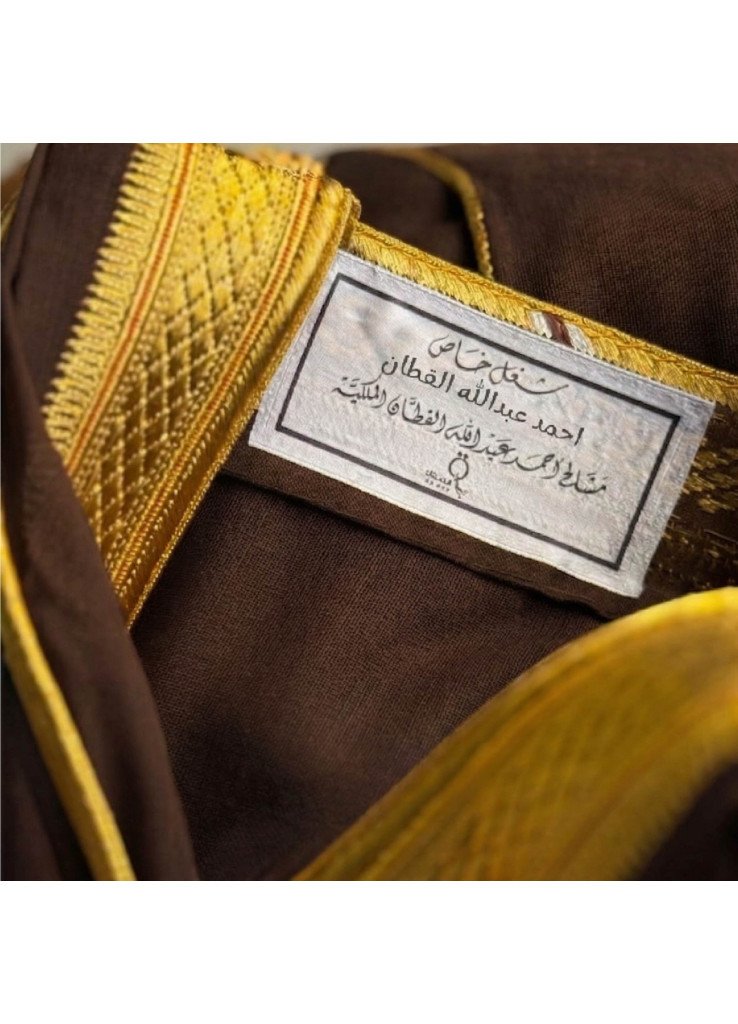 شغل خاص
احمد عبدالله القطان
مشالح أحمد عبد الله القطان الملكية